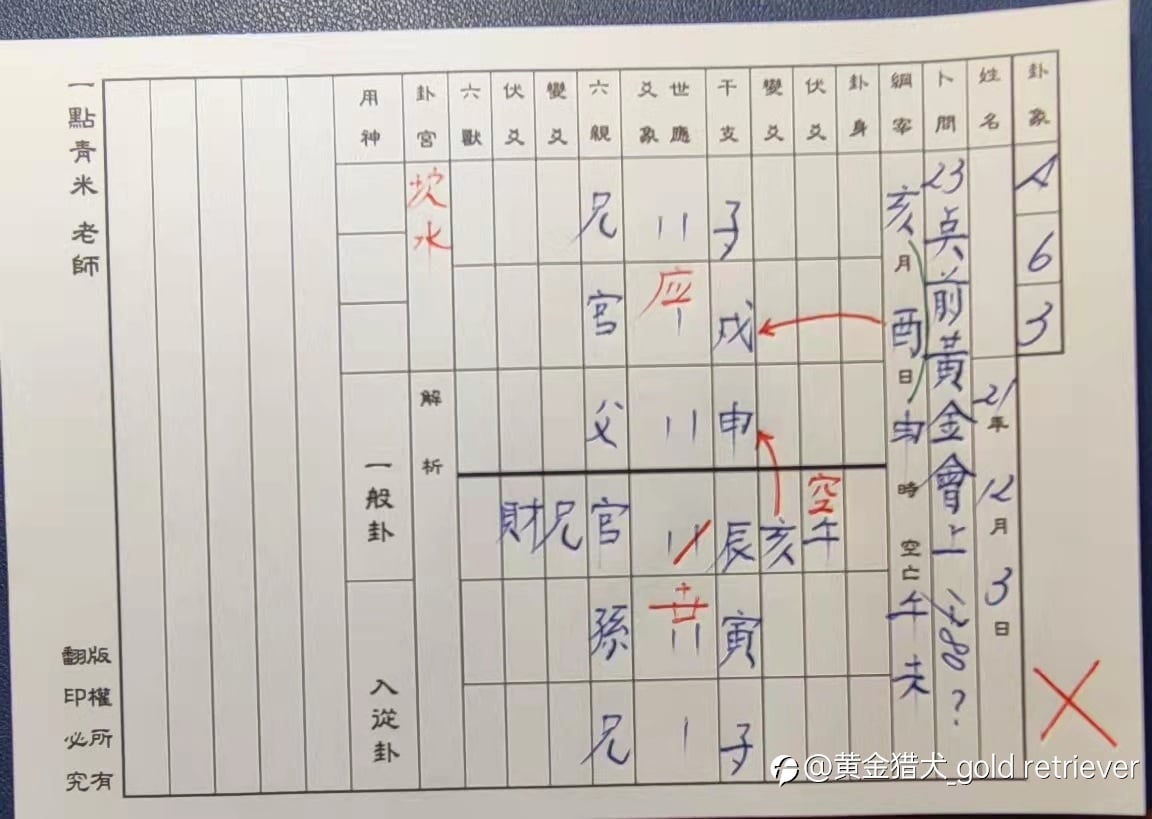 卦象 A 6 3
姓名
21年 12月 3日
卜問 23点前黃金會上 1788?
綱宰 亥月 酉日 申時 空亡 午未
卦身
伏爻 空 午
變爻 亥
干支 子 戌 申 辰 寅 子
世應 爻象 应 世
六親 兄 官 父 官 孫 兄
變爻 兄
伏爻 財
六獸
卦宮 坎水
解析
用神
一般卦
入從卦
一點青米 老師
版權所有
翻印必究
@黄金猎犬_gold retriever